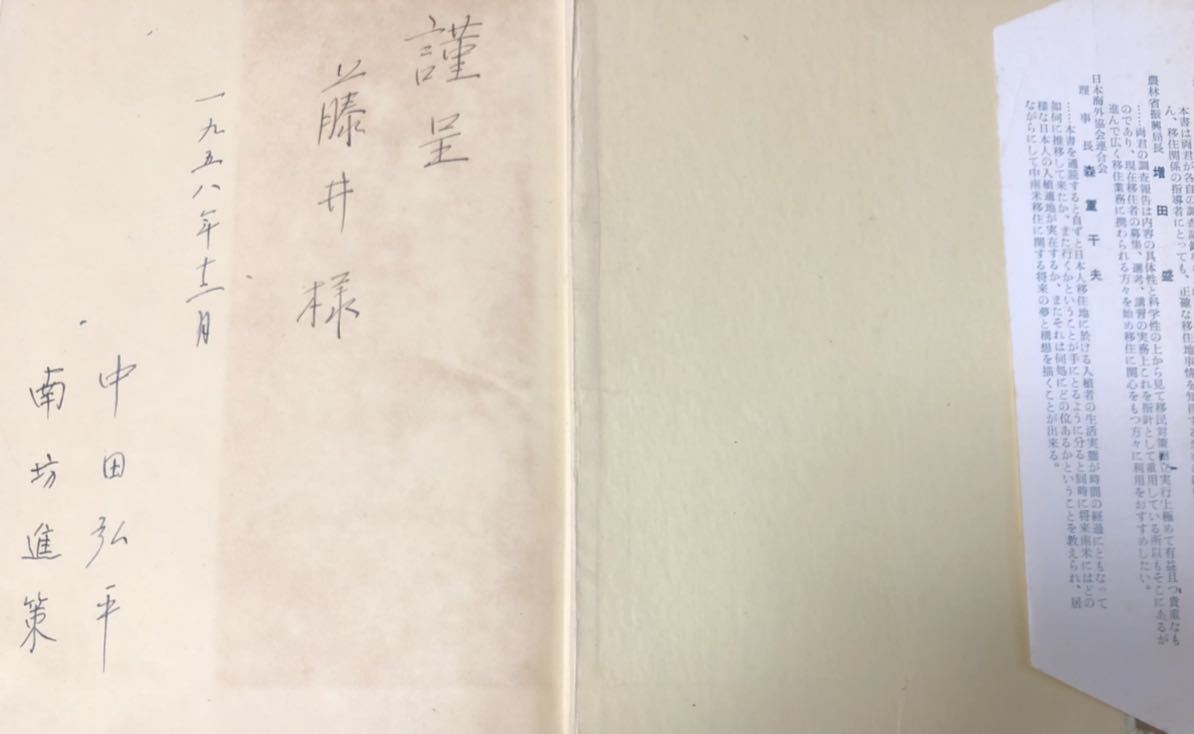 本書は両君が各自の調査
ん、移住関係の指導者にとっても、正確な移住地事情を
農林省振興局長 増田盛
……両君の調査報告は内容の具体性と科学性の上から見て移民対策樹立実行上極めて有益且つ貴重なも
のであり、現在移住者の募集、選考、講習の実務上これを指針として重用している所以もそこにあるが
進んで広く移住業務に携わられる方々を始め移住に関心をもつ方々に利用をおすすめしたい。
日本海外協会連合会
理事長 森重干夫
……本書を通読すると自ずと日本人移住地に於ける入植者の生活実態が時間の経過にともなって
如何に推移して来たか、また行くかということが手にとるように分ると同時に将来南米にはどの
様な日本人の入植適地が実在するか、またそれは何処にどの位あるかということを教えられ、居
ながらにして中南米移住に関する将来の夢と構想を描くことが出来る。
謹呈
藤井様
一九五八年十二月
中田弘平
南坊進策